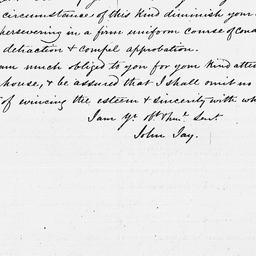 circumstances of this kind diminish your
persevering in a firm uniform course of Cond
detraction & compel approbation.
am much obliged to you for your kind atte
house, & be assured that I shall omit no
of evincing the esteem & sincerity with wh
I am yr. Obt. & hum. Servt
John Jay.